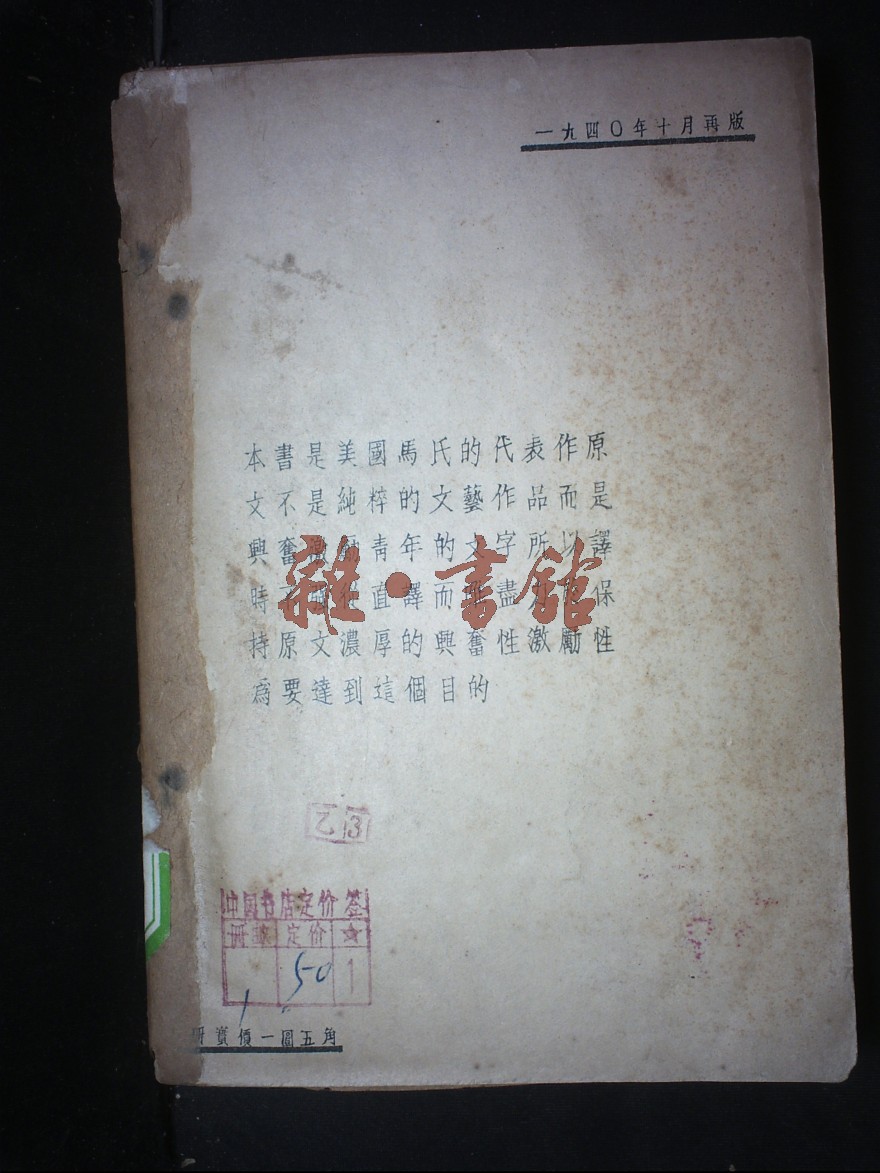 一九四〇年十月再版
本書是美國馬氏的代表作原
文不是純粹的文藝作品而是
興奮激勵青年的文字所以譯
時不 從直譯而 盡力 保
持原文濃厚的興奮性激勵性
爲要達到這個目的
雜·書館
乙 3
中国书店定价签
册数 定价 ☆
1 50 1
實價一圓五角